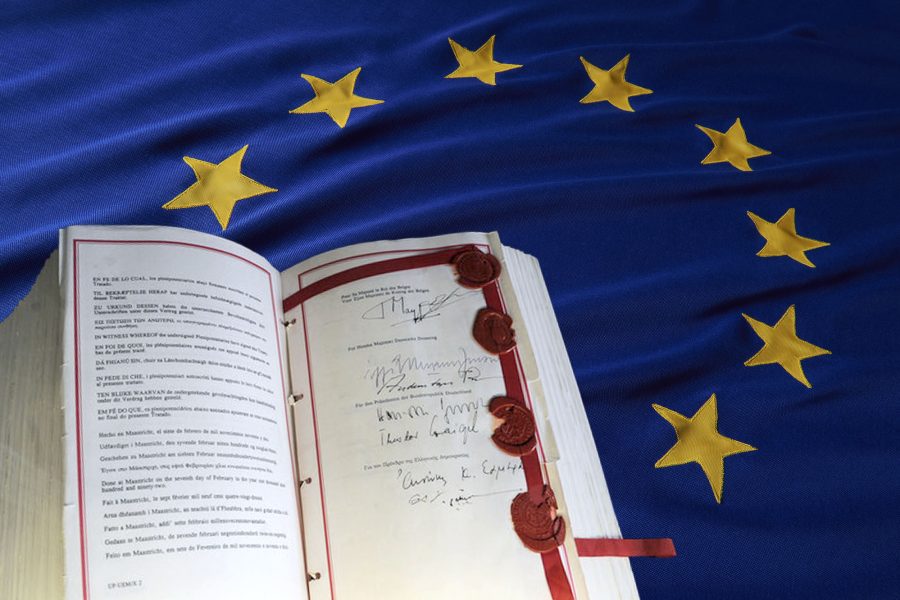 EN FE DE LO CUAL, los plenipotenciarios abajo firmantes suscriben el presente
Tratado.
TIL BEKRÆFTELSE HERAF har undertegnede befuldmægtigede underskrevet
denne Traktat.
ZU URKUND DESSEN haben die unterzeichneten Bevollmächtigten ihre
Unterschriften unter diesen Vertrag gesetzt.
ΣΕ ΠΙΣΤΩΣΗ ΤΩΝ ΑΝΩΤΕΡΩ, οι υπογεγραμμένοι πληρεξούσιοι υπέγραψαν την
παρούσα συνθήκη.
IN WITNESS WHEREOF the undersigned Plenipotentiaries have signed this Treaty.
EN FOI DE QUOI, les plénipotentiaires soussignés ont apposé leurs signatures au
bas du présent traité.
DÁ FHIANÚ SIN, chuir na Lánchumhachtaigh
IN FEDE DI CHE, i plenipotenziari sottoscritti hanno apposto le loro firme in calce
al presente trattato.
TEN BLIJKE WAARVAN de ondergetekende gevolmachtigden hun handtekening
onder dit Verdrag hebben gesteld.
EM FÉ DO QUE, os plenipotenciários abaixo assinados apuseram as suas assinaturas
no final do presente Tratado.
Hecho en Maastricht, el siete de febrero de mil novecientos noventa y dos.
Udfærdiget i Maastricht, den syvende februar nitten hundrede og
Geschehen zu Maastricht am siebten Februar neunzehnhundertzweiundneunzig.
Έγινε στο Μάαστριχτ, στις εφτά Φεβρουαρίου χίλια εννιακόσια ενενήντα δύο.
Done at Maastricht on the seventh day of February in the year one thousand nine
hundred and ninety-two.
Fait à Maastricht, le sept février mil neuf cent quatre-vingt-douze.
Arna dhéanamh i Maastricht, an seachtú lá d'Fheabhra, míle naoi gcéad
Fatto a Maastricht, addì' sette febbraio millenovecentonovantadue.
Gedaan te Maastricht, de zevende februari negentienhonderd twee-en-negentig.
Feito em Maastricht, em sete de Fevereiro de mil novecentos e noventa e dois.
UP-UEM/X 2
Pour Sa Majesté le Roi des Belges
Voor Zijne Majesteit de Koning der Belgen
For Hendes Majestæt Danmarks Dronning
Für den Präsidenten der Bundesrepublik Deutschland
Για τον Πρόεδρο της Ελληνικής Δημοκρατίας